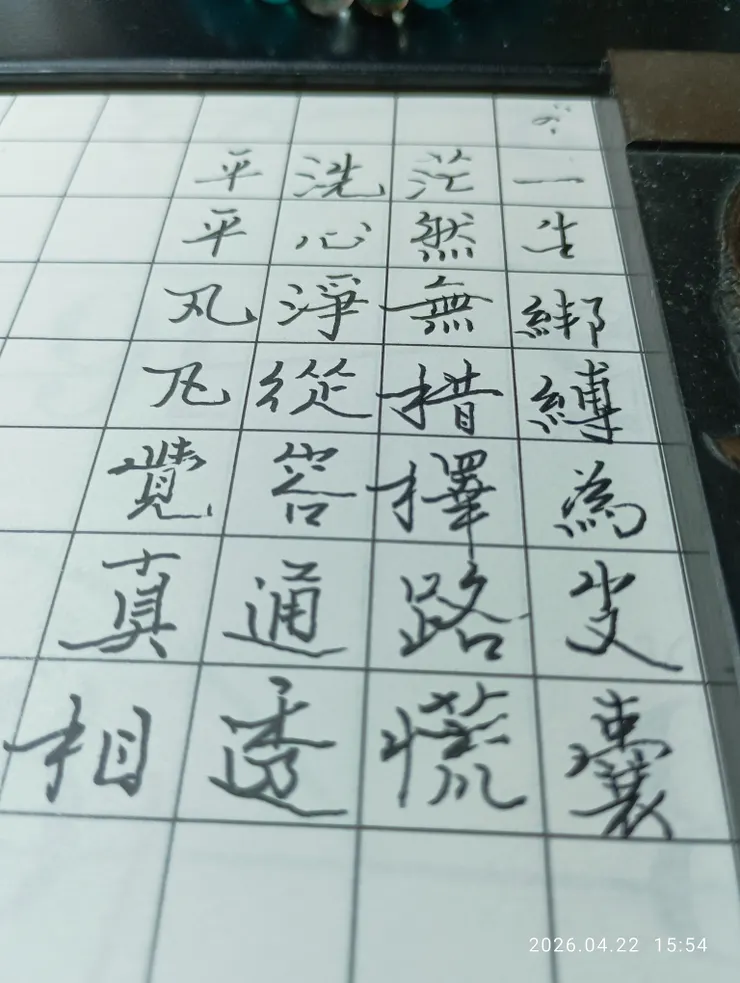 一生綁縛為皮囊
茫然無措擇路慌
洗心淨從容通透
平平凡凡覺真相
2026.04.22 15:54